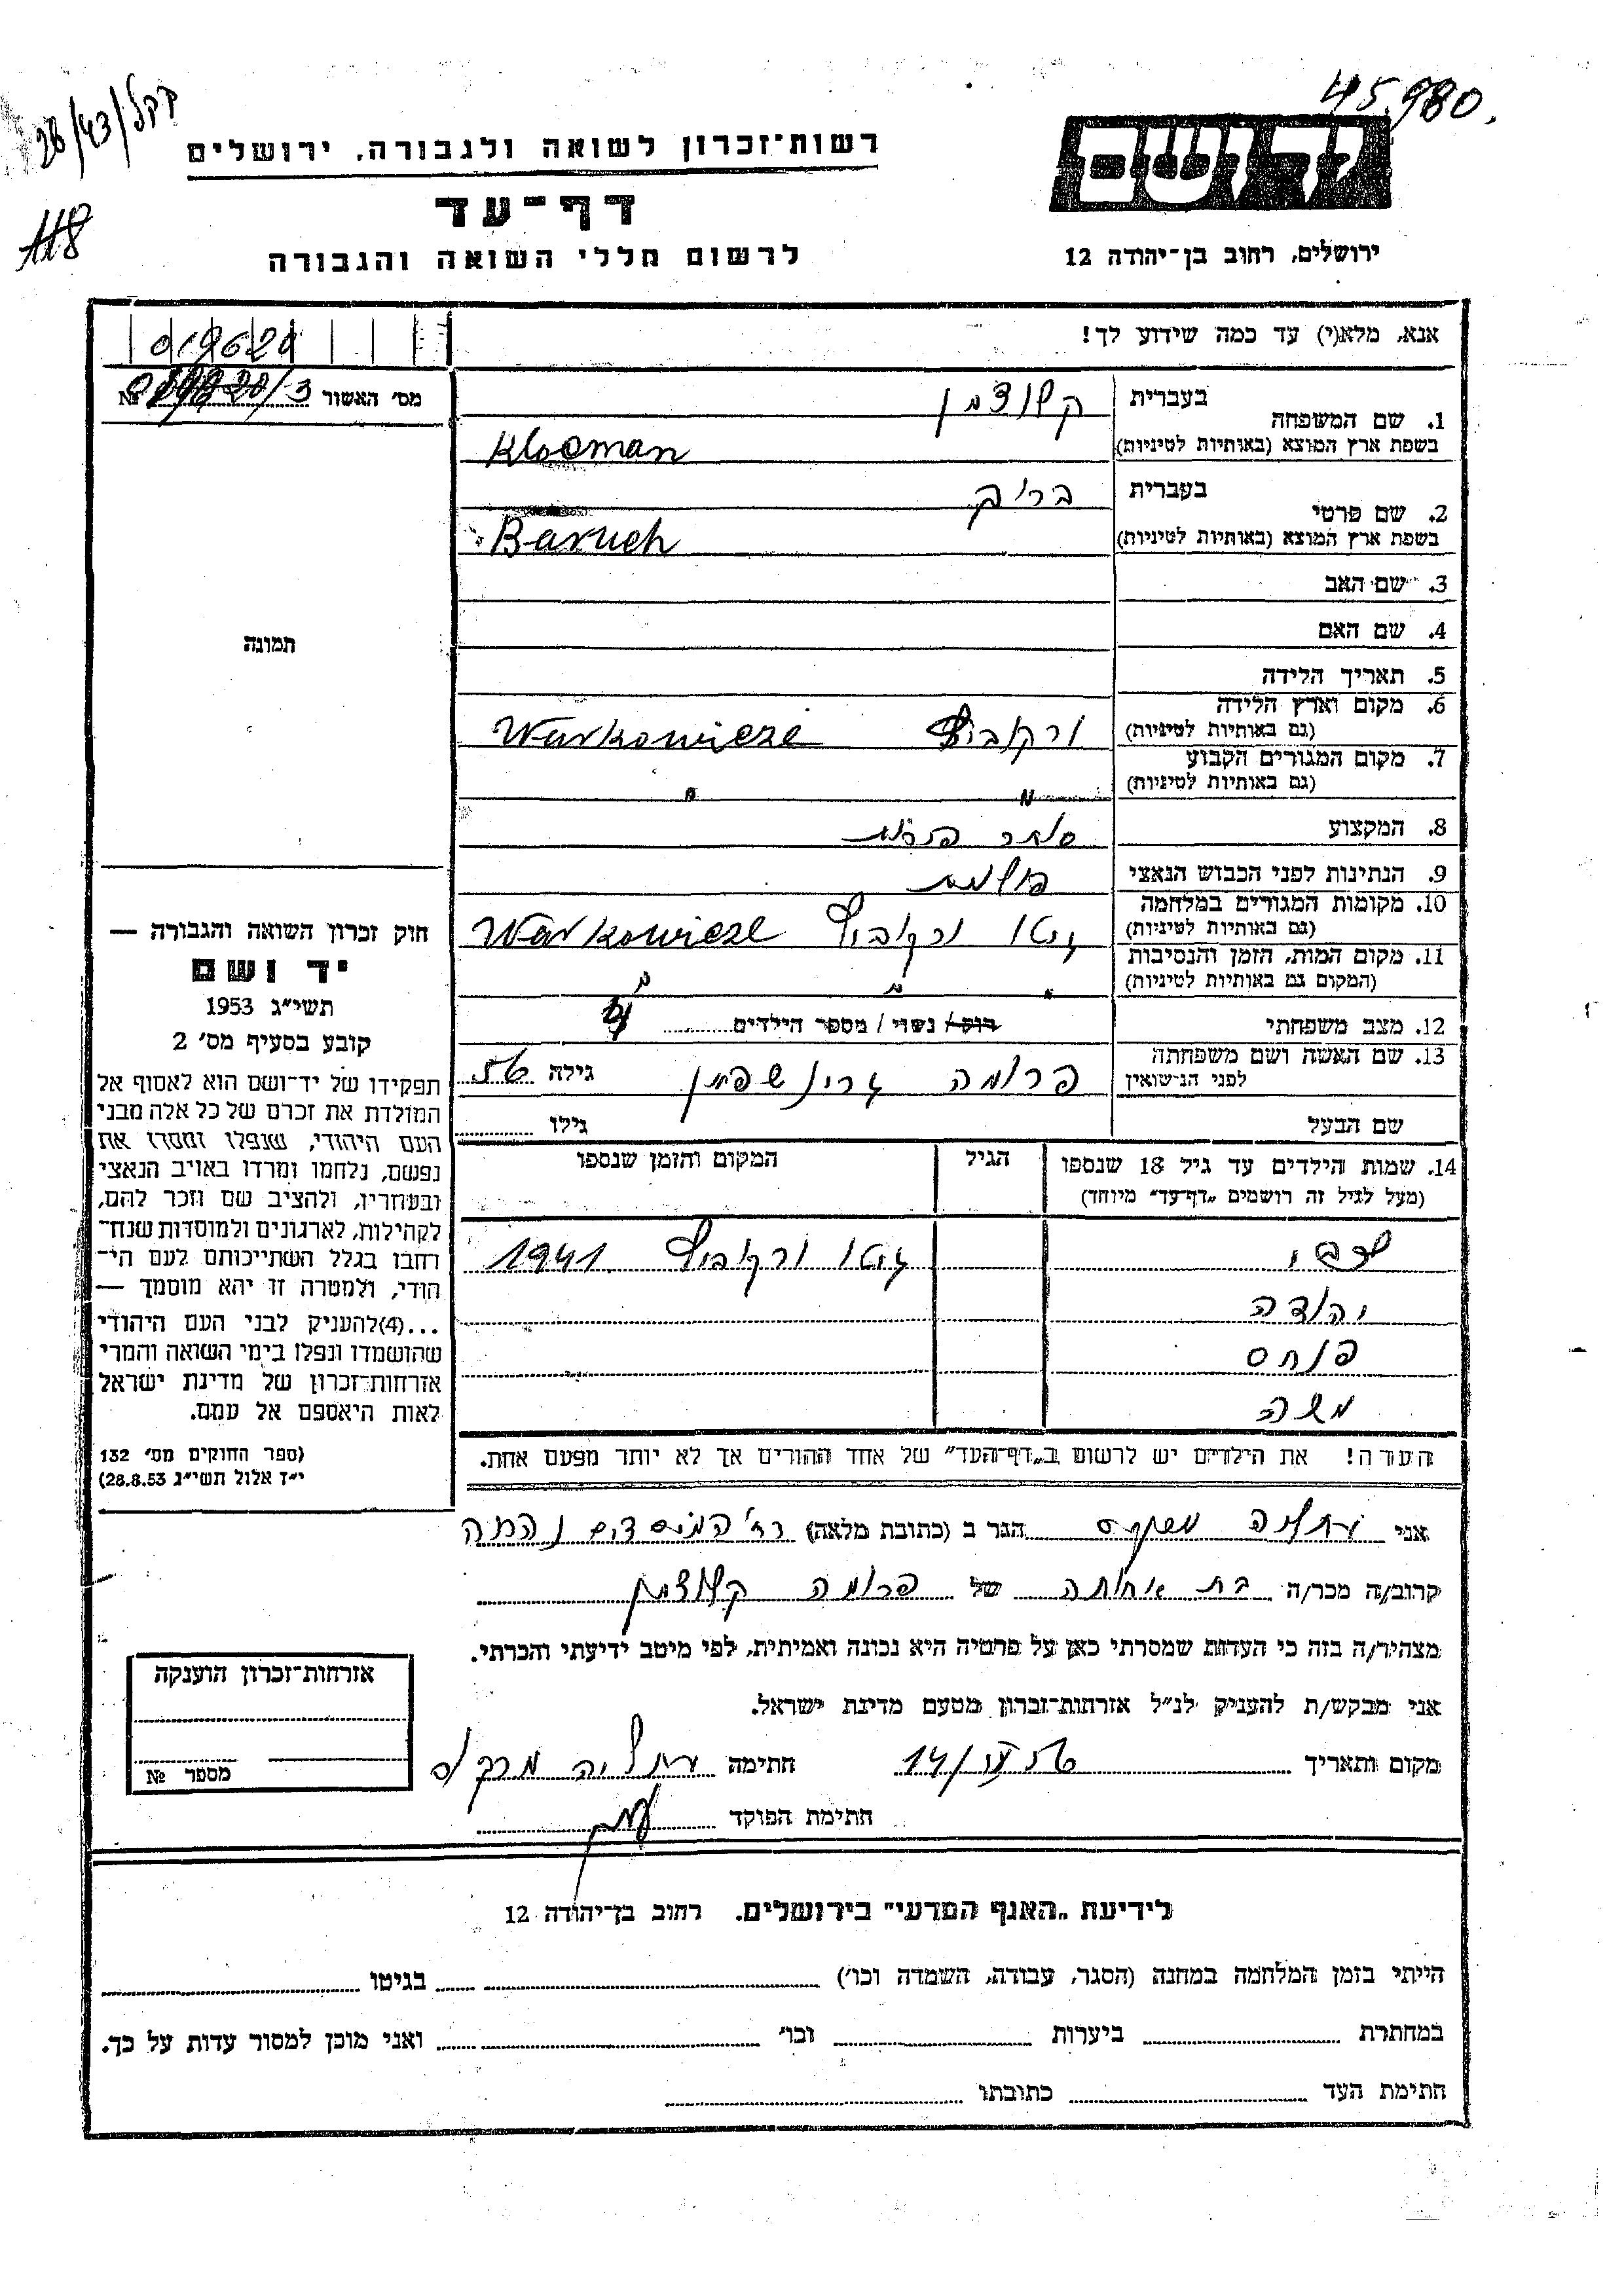 45.980.
רשות־זכרון לשואה ולגבורה, ירושלים
דף־עד
118
לרשום חללי השואה והגבורה
ירושלים, רחוב בן־יהודה 12
אנא, מלא(י) עד כמה שידוע לך!
מס׳ האשור №
1. שם המשפחה
בעברית קלודמן
בשפת ארץ המוצא (באותיות לטיניות) Klooman
2. שם פרטי
בעברית ברוך
בשפת ארץ המוצא (באותיות לטיניות) Baruch
3. שם האב
4. שם האם
תמונה
5. תאריך הלידה
6. מקום וארץ הלידה
(גם באותיות לטיניות) ורקוביץ Warkowicze
7. מקום המגורים הקבוע
(גם באותיות לטיניות) " "
8. המקצוע סוחר
9. הנתינות לפני הכבוש הנאצי פולנית
10. מקומות המגורים במלחמה
(גם באותיות לטיניות) גיטו ורקוביץ Warkowicze
11. מקום המות, הזמן והנסיבות
(המקום גם באותיות לטיניות) " " "
12. מצב משפחתי רווק / נשוי / מספר הילדים
13. שם האשה ושם משפחתה
לפני הנישואין פרומה גרינשפון גילה
שם הבעל גילו
14. שמות הילדים עד גיל 18 שנספו
(מעל לגיל זה רושמים „דף־עד״ מיוחד)
הגיל
המקום והזמן שנספו
גיטו ורקוביץ 1941
יהודה
פנחס
משה
הערה! את הילדים יש לרשום ב„דף־העד״ של אחד ההורים אך לא יותר מפעם אחת.
חוק זכרון השואה והגבורה —
יד ושם
תשי״ג 1953
קובע בסעיף מס׳ 2
תפקידו של יד־ושם הוא לאסוף אל
המולדת את זכרם של כל אלה מבני
העם היהודי, שנפלו ומסרו את
נפשם, נלחמו ומרדו באויב הנאצי
ובעוזריו, ולהציב שם וזכר להם,
לקהילות, לארגונים ולמוסדות שנח־
רבו בגלל השתייכותם לעם הי־
הודי, ולמטרה זו יהא מוסמך —
...(4)להעניק לבני העם היהודי
שהושמדו ונפלו בימי השואה והמרי
אזרחות־זכרון של מדינת ישראל
לאות היאספם אל עמם.
(ספר החוקים מס׳ 132
י״ז אלול תשי״ג 28.8.53)
אני עתליה הגר ב (כתובת מלאה) רח׳ המיסדים
קרוב/ה מכר/ה בת אחותה של פרומה קלודמן
מצהיר/ה בזה כי העדות שמסרתי כאן על פרטיה היא נכונה ואמיתית, לפי מיטב ידיעתי והכרתי.
אני מבקש/ת להעניק לנ״ל אזרחות־זכרון מטעם מדינת ישראל.
מקום ותאריך חתימה עתליה
חתימת הפוקד
אזרחות־זכרון הוענקה
מספר №
לידיעת „האגף המדעי״ בירושלים. רחוב בן־יהודה 12
הייתי בזמן המלחמה במחנה (הסגר, עבודה, השמדה וכו׳) בגיטו
במחתרת ביערות וכו׳ ואני מוכן למסור עדות על כך.
חתימת העד כתובתו